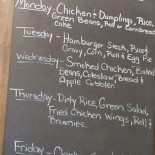 Monday - Chicken & Dumplings, Rice,
Green Beans, Roll or Cornbread
Cake
Tuesday - Hamburger Steak, Rice &
Gravy, Corn, Roll & Egg Pie
Wednesday - Smoked Chicken, Baked
Beans, Coleslaw, Bread &
Apple Cobbler
Thursday - Dirty Rice, Green Salad,
Fried Chicken Wings, Roll &
Brownies.
Friday -